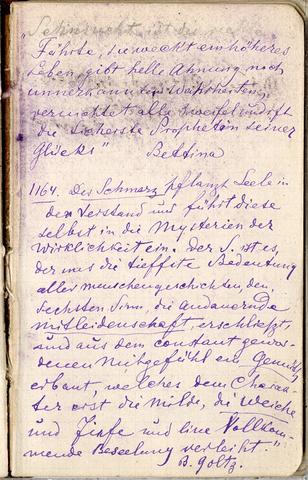 Sehnsucht ist die
"Fährte, sie weckt ein höheres
Leben, gibt helle Ahnung noch
unnerkannter Wahrheiten,
vernichtet alle Zweifel und ist
die sicherste Prophetin seiner
Glücks"      Bettina
1164. Der Schmerz pflanzt Seele in
den Verstand und führt diese
selbst in die Mysterien der
Wirklichkeit ein. Der S. ist es,
der uns die tieffste Bedeutung
aller menschengeschichten, den
sechsten Sinn, die andauernde
mitleidenschaft, erschliesst,
und aus dem constant gewor-
denen Mitgefühl ein Gemüth
erbaut, welches dem Charac-
ter erst die Milde, die Weiche
und Tiefe und eine Vollkom-
mende Beseelung verleiht."
B. Goltz.